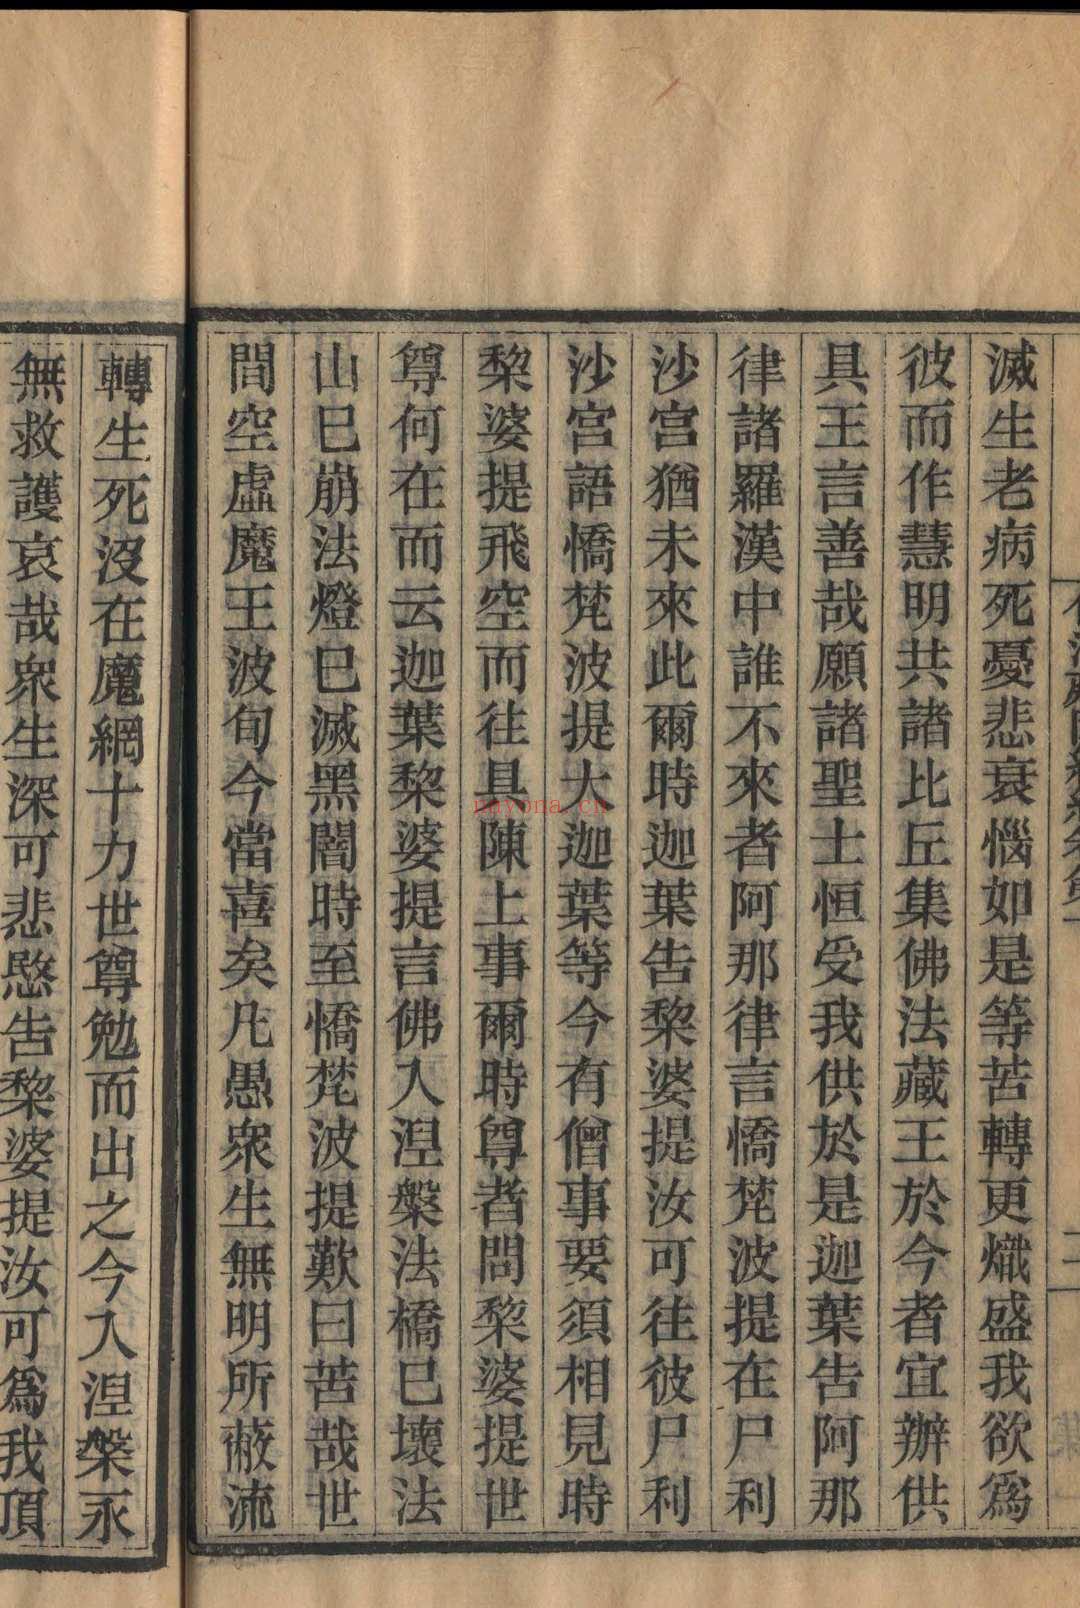 滅生老病死憂悲衰惱如是等苦轉更熾盛我欲爲
彼而作慧明共諸比丘集佛法藏王於今者宜辦供
具王言善哉願諸聖士恒受我供於是迦葉告阿那
律諸羅漢中誰不來者阿那律言憍梵波提在尸利
沙宮猶未來此爾時迦葉告黎婆提汝可往彼尸利
沙宮語憍梵波提大迦葉等今有僧事要須相見時
黎婆提飛空而往具陳上事爾時尊者問黎婆提世
尊何在而云迦葉黎婆提言佛入涅槃法橋已壞法
山已崩法燈已滅黑闇時至憍梵波提歎曰苦哉世
間空虛魔王波旬今當喜矣凡愚衆生無明所蔽流
轉生死沒在魔網十力世尊勉而出之今入涅槃永
無救護哀哉衆生深可悲愍告黎婆提汝可爲我頂
nayona.cn